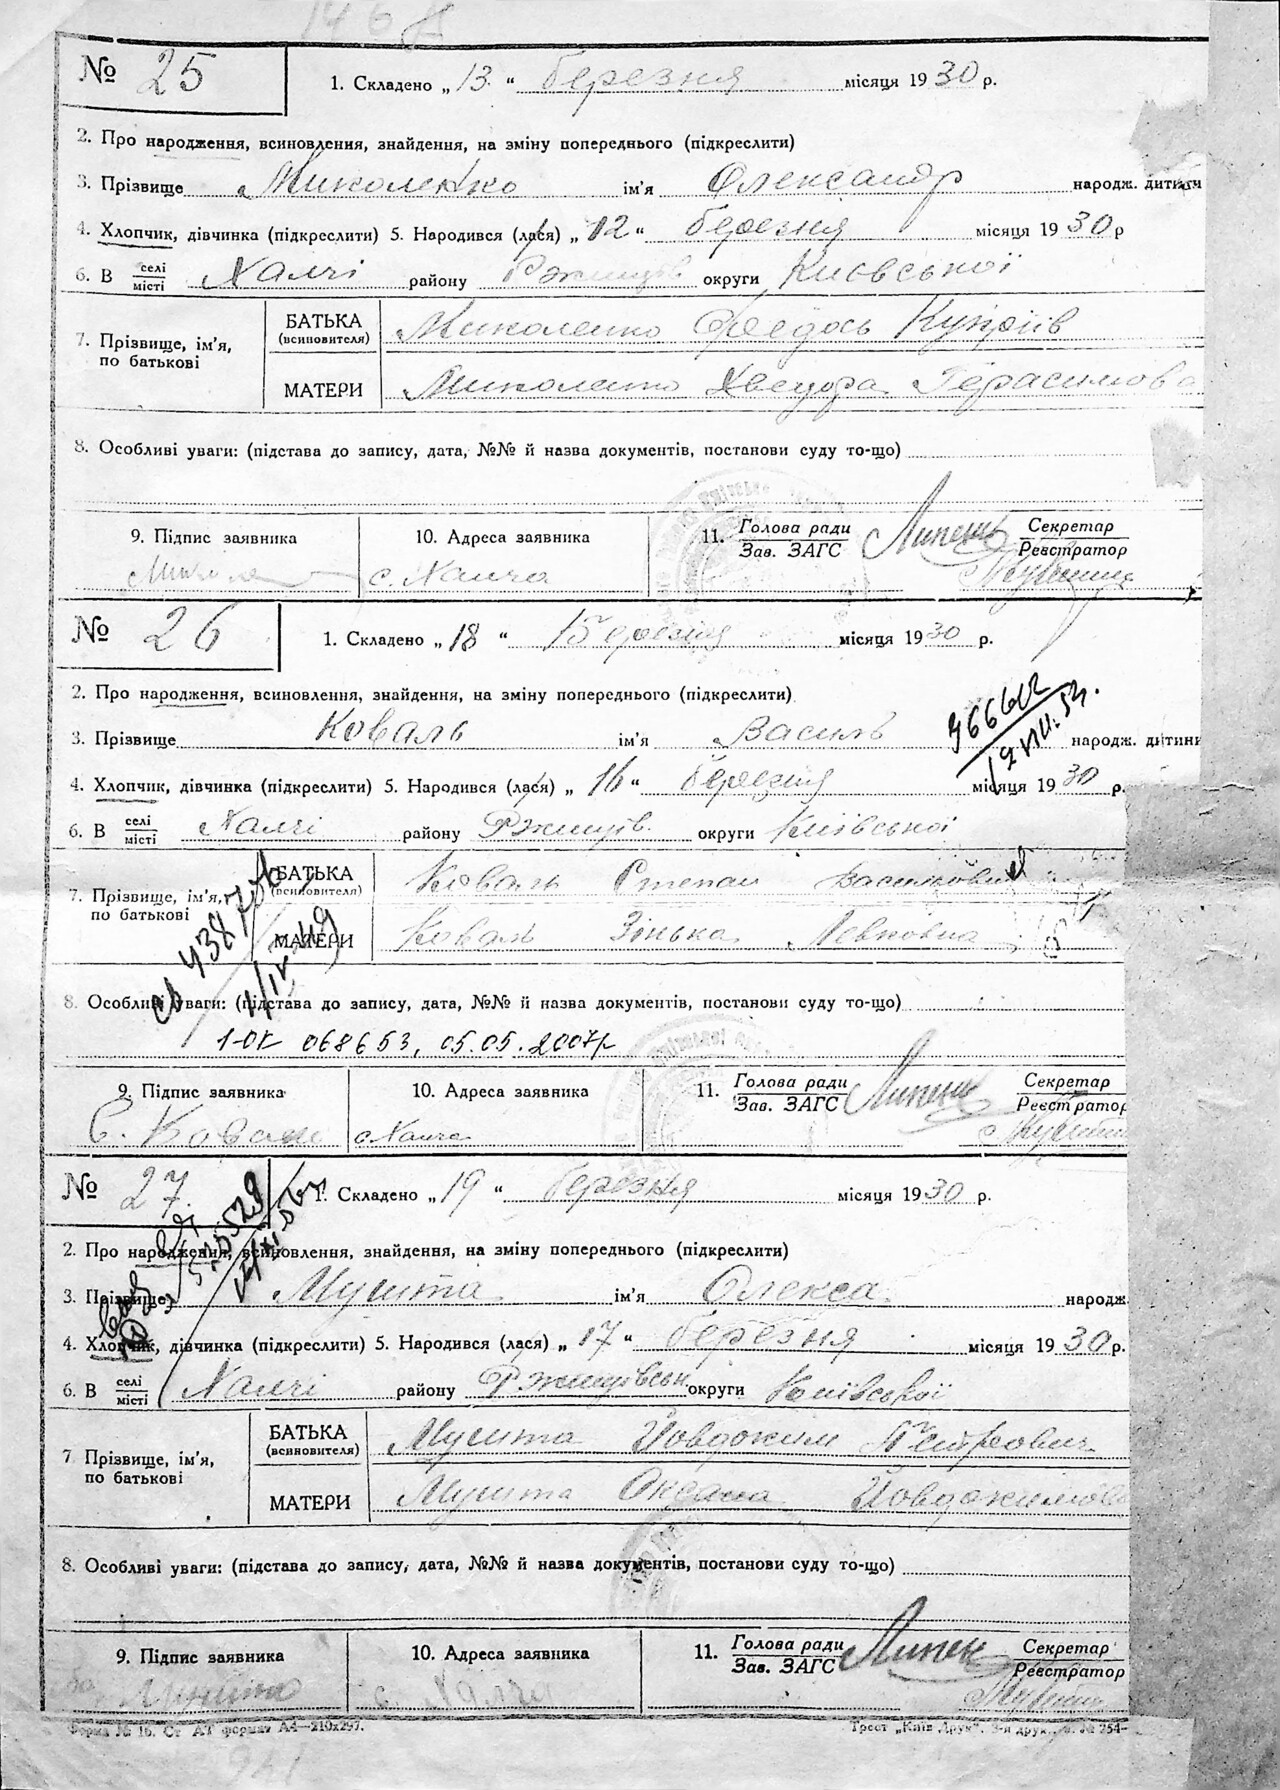 № 25
1. Складено „13“ березня місяця 1930 р.
2. Про народження, всиновлення, знайдення, на зміну попереднього (підкреслити)
3. Прізвище Миколенко ім'я Олександр народж. дитини
4. Хлопчик, дівчинка (підкреслити) 5. Народився (лася) „12“ березня місяця 1930 р
6. В селі місті Халчі району Ржищів округи Київської
7. Прізвище, ім'я, по батькові
БАТЬКА (всиновителя) Миколенко Федось Купріїв
МАТЕРИ Миколенко Хведора Герасимова
8. Особливі уваги: (підстава до запису, дата, №№ й назва документів, постанови суду то-що)
9. Підпис заявника 10. Адреса заявника 11. Голова ради Зав. ЗАГС Липень Секретар Реєстратор
с. Халча
№ 26
1. Складено „18“ березня місяця 1930 р.
2. Про народження, всиновлення, знайдення, на зміну попереднього (підкреслити)
3. Прізвище Коваль ім'я Василь народж. дитини
4. Хлопчик, дівчинка (підкреслити) 5. Народився (лася) „16“ березня місяця 1930 р.
6. В селі місті Халчі району Ржищів. округи Київської
7. Прізвище, ім'я, по батькові
БАТЬКА (всиновителя) Коваль Степан Васильович
МАТЕРИ Коваль Зінька Левковна
8. Особливі уваги: (підстава до запису, дата, №№ й назва документів, постанови суду то-що)
1-ОК 068653, 05.05.2007р
9. Підпис заявника 10. Адреса заявника 11. Голова ради Зав. ЗАГС Липень Секретар Реєстратор
С. Коваль с Халча
№ 27.
1. Складено „19“ березня місяця 1930 р.
2. Про народження, всиновлення, знайдення, на зміну попереднього (підкреслити)
3. Прізвище Мусита ім'я Олекса народж.
4. Хлопчик, дівчинка (підкреслити) 5. Народився (лася) „17“ березня місяця 1930 р.
6. В селі місті Халчі району Ржищівськ округи Київської
7 Прізвище, ім'я, по батькові
БАТЬКА (всиновителя) Мусита Йовдоким Петрович
МАТЕРИ Мусита Оксана Йовдокимова
8. Особливі уваги: (підстава до запису, дата, №№ й назва документів, постанови суду то-що)
9. Підпис заявника 10. Адреса заявника 11. Голова ради Зав. ЗАГС Липень Секретар Реєстратор
с. Халча
Форма № 16. Ст А4 формат А4—210х297. Трест „Київ Друк“. 3-я друк.